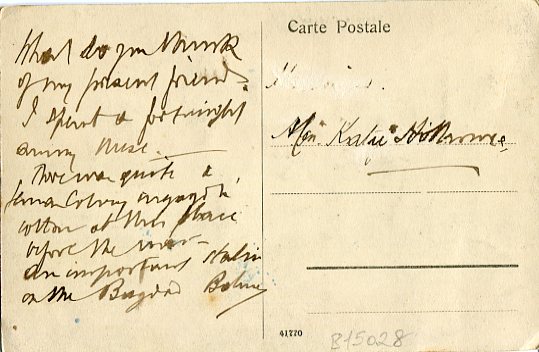 What do you think
of my present friends.
I spent a fortnight
among these.
There was quite a
German Colony engaged in
cotton at this place
before the war —
an important station
on the Bagdad
Carte Postale
Katie
41770
B15028